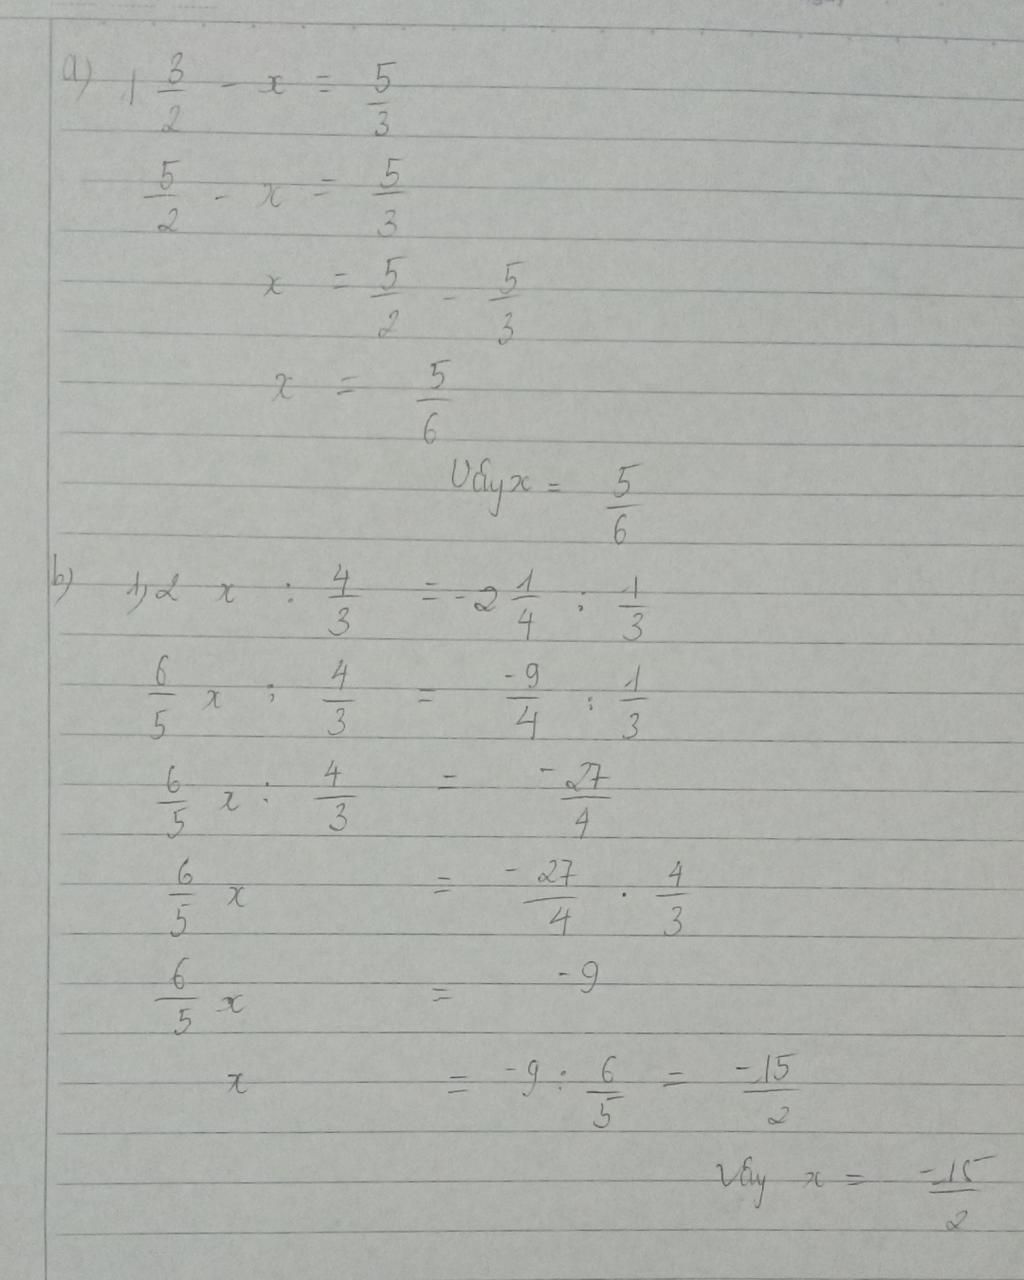 a) 1 3/2 - x = 5/3
5/2 - x = 5/3
x = 5/2 - 5/3
x = 5/6
Vậy x = 5/6
b) 1,2 x : 4/3 = -2 1/4 : 1/3
6/5 x : 4/3 = -9/4 : 1/3
6/5 x : 4/3 = -27/4
6/5 x = -27/4 . 4/3
6/5 x = -9
x = -9 : 6/5 = -15/2
Vậy x = -15/2